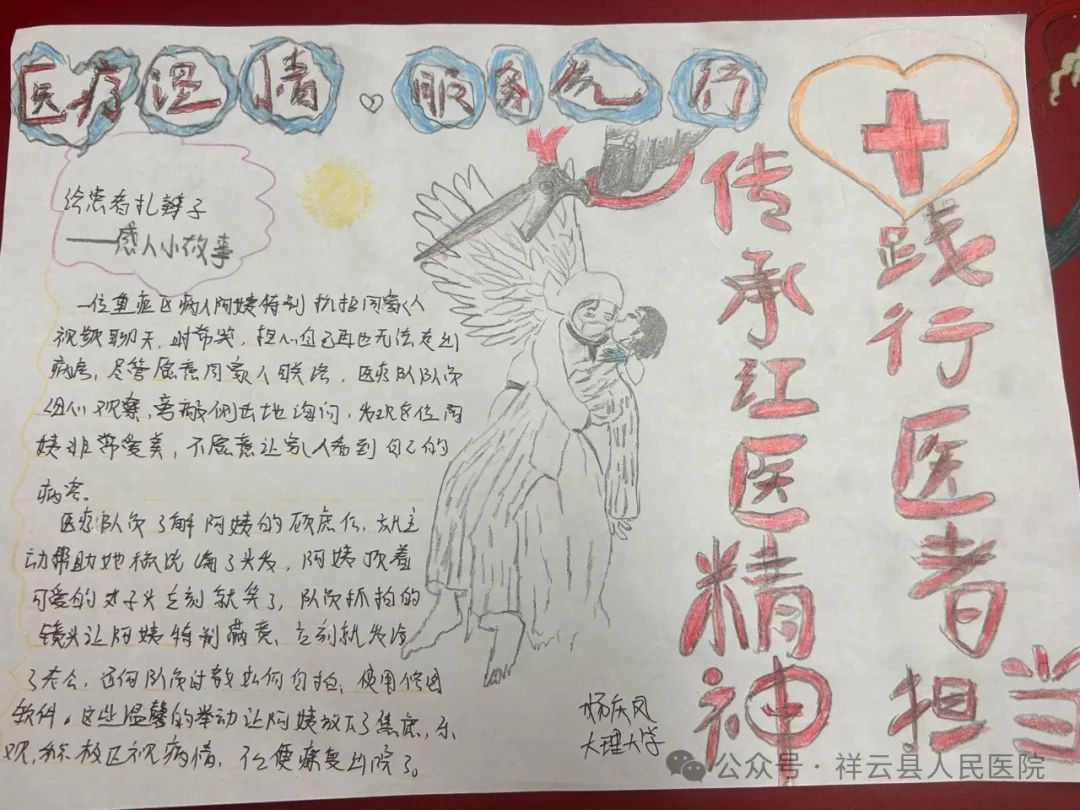 医疗温情·服务先行
给患者扎辫子
——感人小故事
一位重症区病人阿姨特别抗拒同家人
视频聊天，时常哭，担心自己再也无法走出
病房，尽管愿意同家人联络，医疗队队员
细心观察，旁敲侧击地询问，发现这位阿
姨非常爱美，不愿意让家人看到自己的
病容。
医疗队员了解阿姨的顾虑后，就主
动帮助她梳洗 编了头发，阿姨顶着
可爱的丸子头立刻就笑了，队员抓拍的
镜头让阿姨特别满意，立刻就发给
了老公，还向队员请教如何自拍，使用修图
软件。这些温馨的举动让阿姨放下了焦虑，乐
观，积极区视病情，不便康复出院了。
传承红医精神
践行医者担当
大理大学
公众号·祥云县人民医院